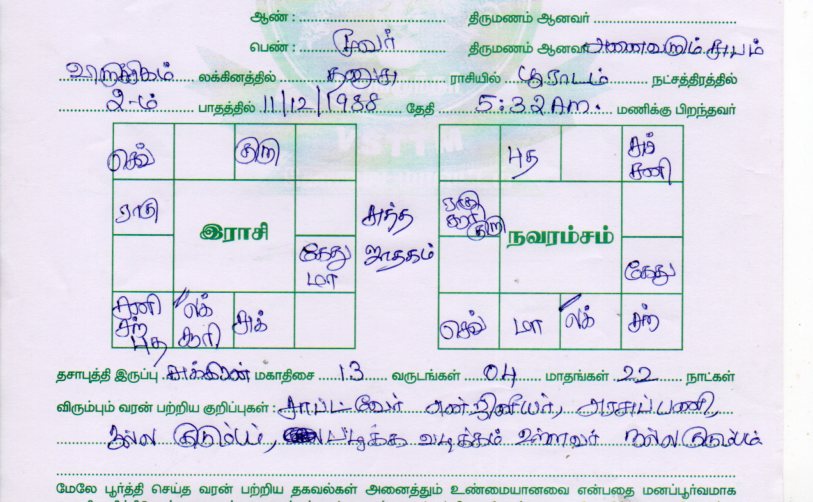 ஆண் : திருமணம் ஆனவர்
பெண் : மூவர் திருமணம் ஆனவர் அனைவரும் சுபம்
விருச்சிகம் லக்கினத்தில் தனுசு ராசியில் பூராடம் நட்சத்திரத்தில்
2-ம் பாதத்தில் 11/12/1988 தேதி 5:32 Am. மணிக்கு பிறந்தவர்
செவ் குரு புத சுக் சனி
ராகு ராகு சூரி குரு
இராசி நவாம்சம்
கேது மா கேது
சனி சந் புத லக் சூரி சுக் செவ் மா லக் சந்
தசாபுத்தி இருப்பு சுக்கிரன் மகாதிசை 13 வருடங்கள் 04 மாதங்கள் 22 நாட்கள்
விரும்பும் வரன் பற்றிய குறிப்புகள் : சாப்ட்வேர் என்ஜினியர், அரசுப்பணி,
நல்ல குடும்பம், உள்ளவர் நல்ல குடும்பம்
மேலே பூர்த்தி செய்த வரன் பற்றிய தகவல்கள் அனைத்தும் உண்மையானவை என்பதை மனப்பூர்வமாக